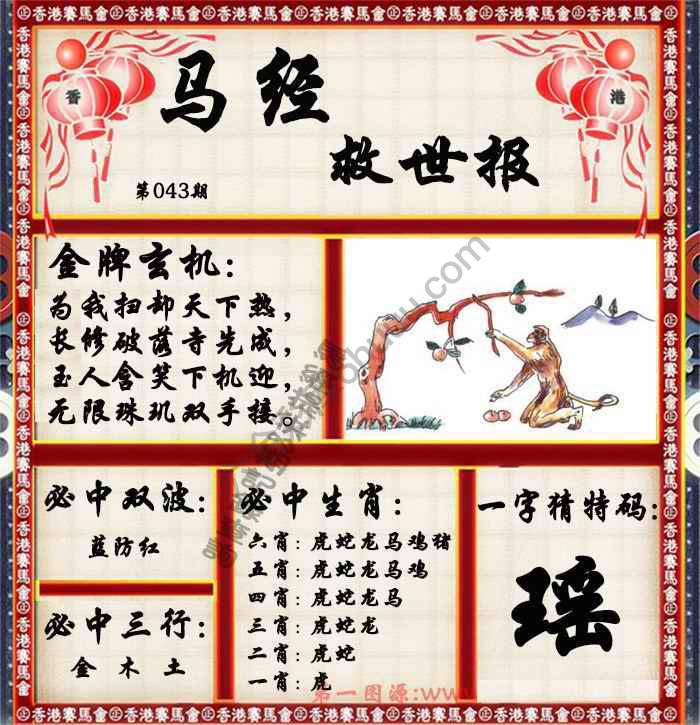 香港赛馬會
香 港
马经
救世报
第043期
金牌玄机:
为我扫却天下热，
长修破落寺先成，
玉人含笑下机迎，
无限珠玑双手接。
必中双波:
蓝防红
必中三行:
金 木 土
必中生肖:
六肖: 虎蛇龙马鸡猪
五肖: 虎蛇龙马鸡
四肖: 虎蛇龙马
三肖: 虎蛇龙
二肖: 虎蛇
一肖: 虎
一字猜特码:
瑶
第一图源:www